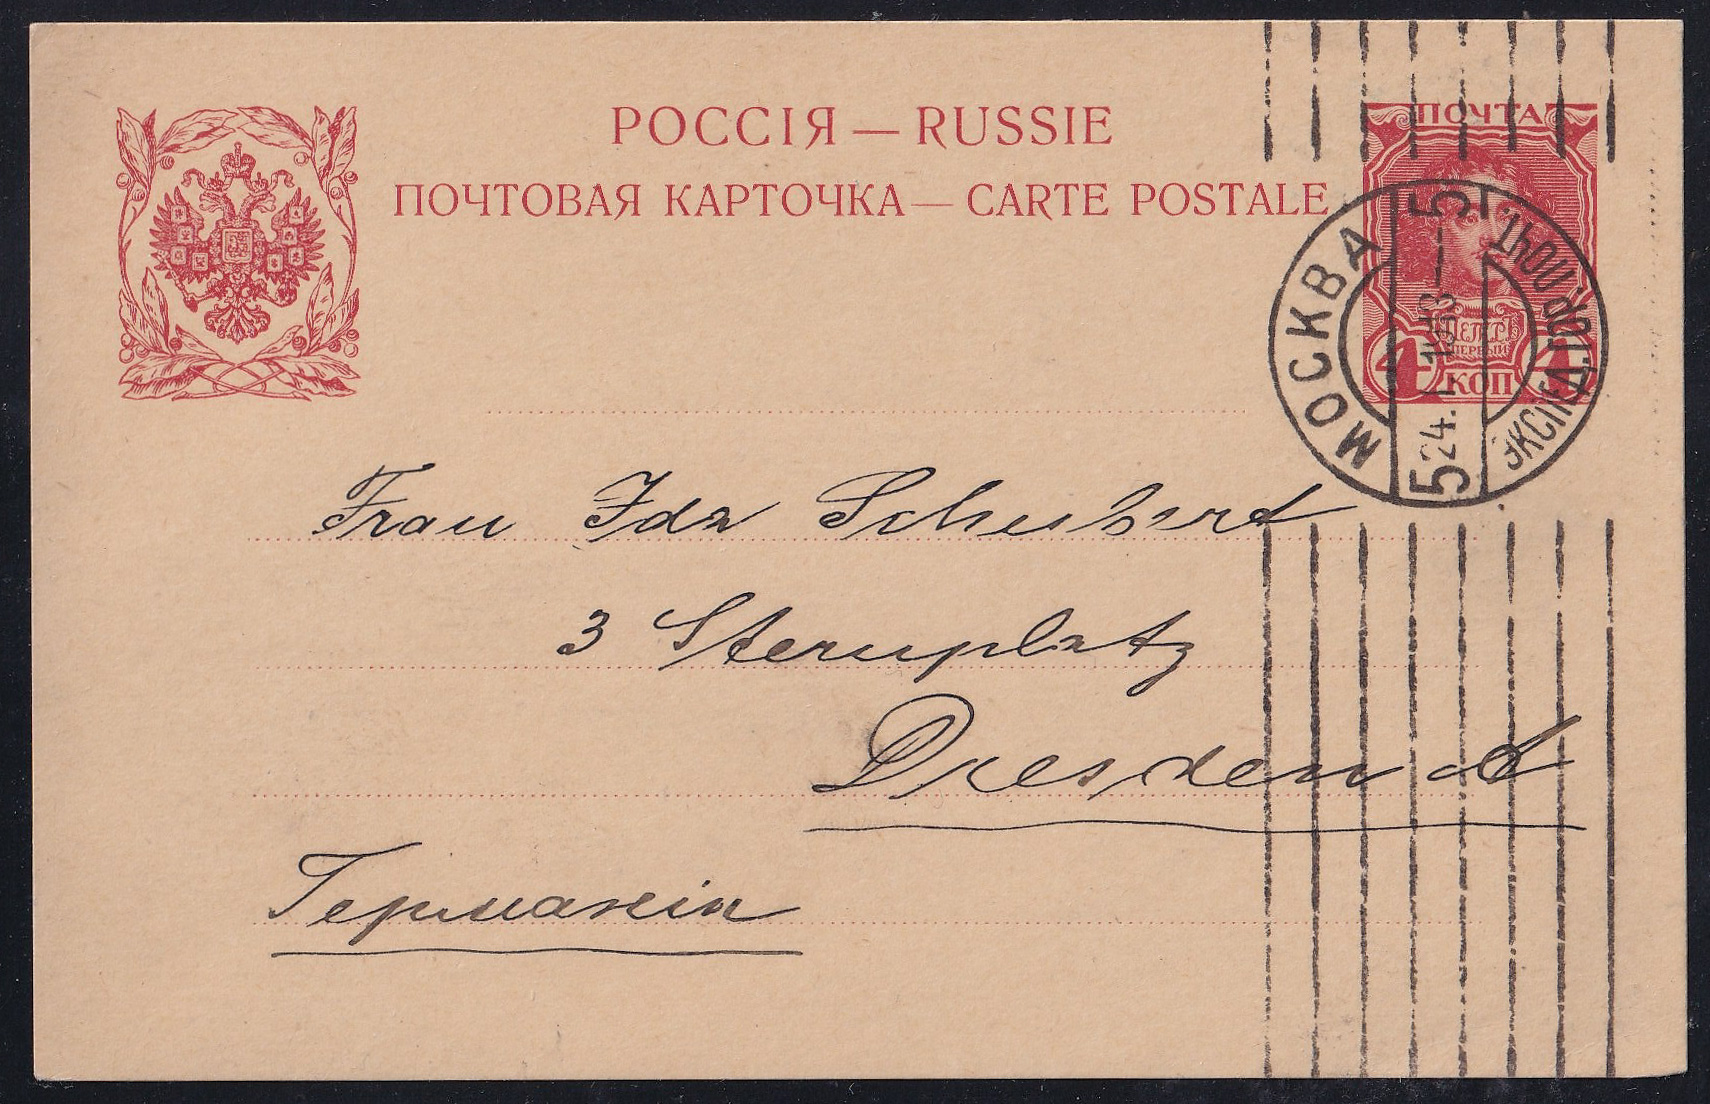 РОССІЯ — RUSSIE
ПОЧТОВАЯ КАРТОЧКА — CARTE POSTALE
ПОЧТА
ПЕТРЪ
ПЕРВЫЙ
4 КОП 4
МОСКВА
5 24. 13 — 5
ЭКСПЕД. ГОР. ПОЧТ.
Frau Ida Schubert
3 Sternplatz
Dresden A
Германія